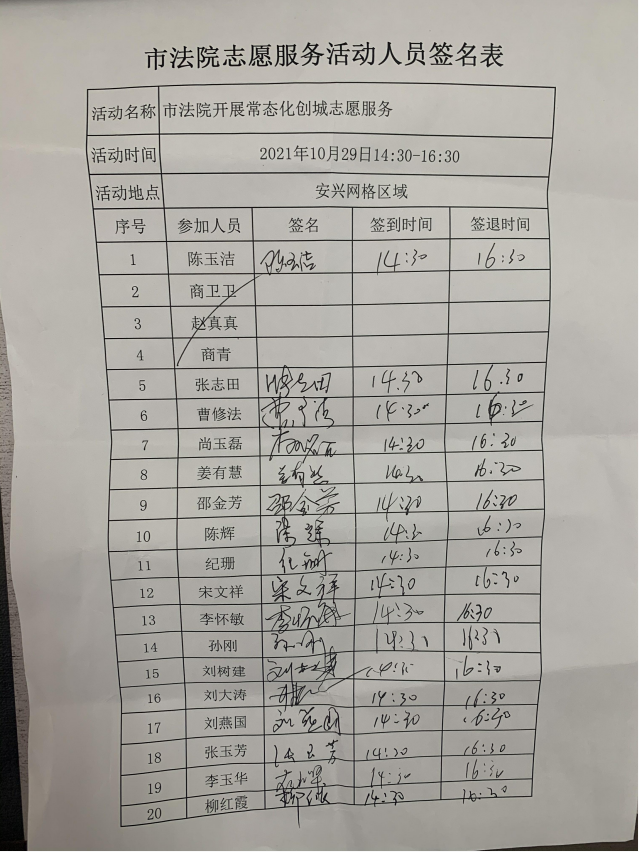 市法院志愿服务活动人员签名表
活动名称 市法院开展常态化创城志愿服务
活动时间 2021年10月29日14:30-16:30
活动地点 安兴网格区域
序号 参加人员 签名 签到时间 签退时间
1 陈玉洁 陈玉洁 14:30 16:30
2 商卫卫
3 赵真真
4 商青
5 张志田 张志田 14:30 16:30
6 曹修法 曹修法 14:30 16:30
7 尚玉磊 14:30 16:30
8 姜有慧 姜有慧 14:30 16:30
9 邵金芳 邵金芳 14:30 16:30
10 陈辉 陈辉 14:30 16:30
11 纪珊 纪珊 14:30 16:30
12 宋文祥 宋文祥 14:30 16:30
13 李怀敏 李怀敏 14:30 16:30
14 孙刚 孙刚 14:30 16:30
15 刘树建 刘树建 14:30 16:30
16 刘大涛 14:30 16:30
17 刘燕国 刘燕国 14:30 16:30
18 张玉芳 张玉芳 14:30 16:30
19 李玉华 14:30 16:30
20 柳红霞 14:30 16:30